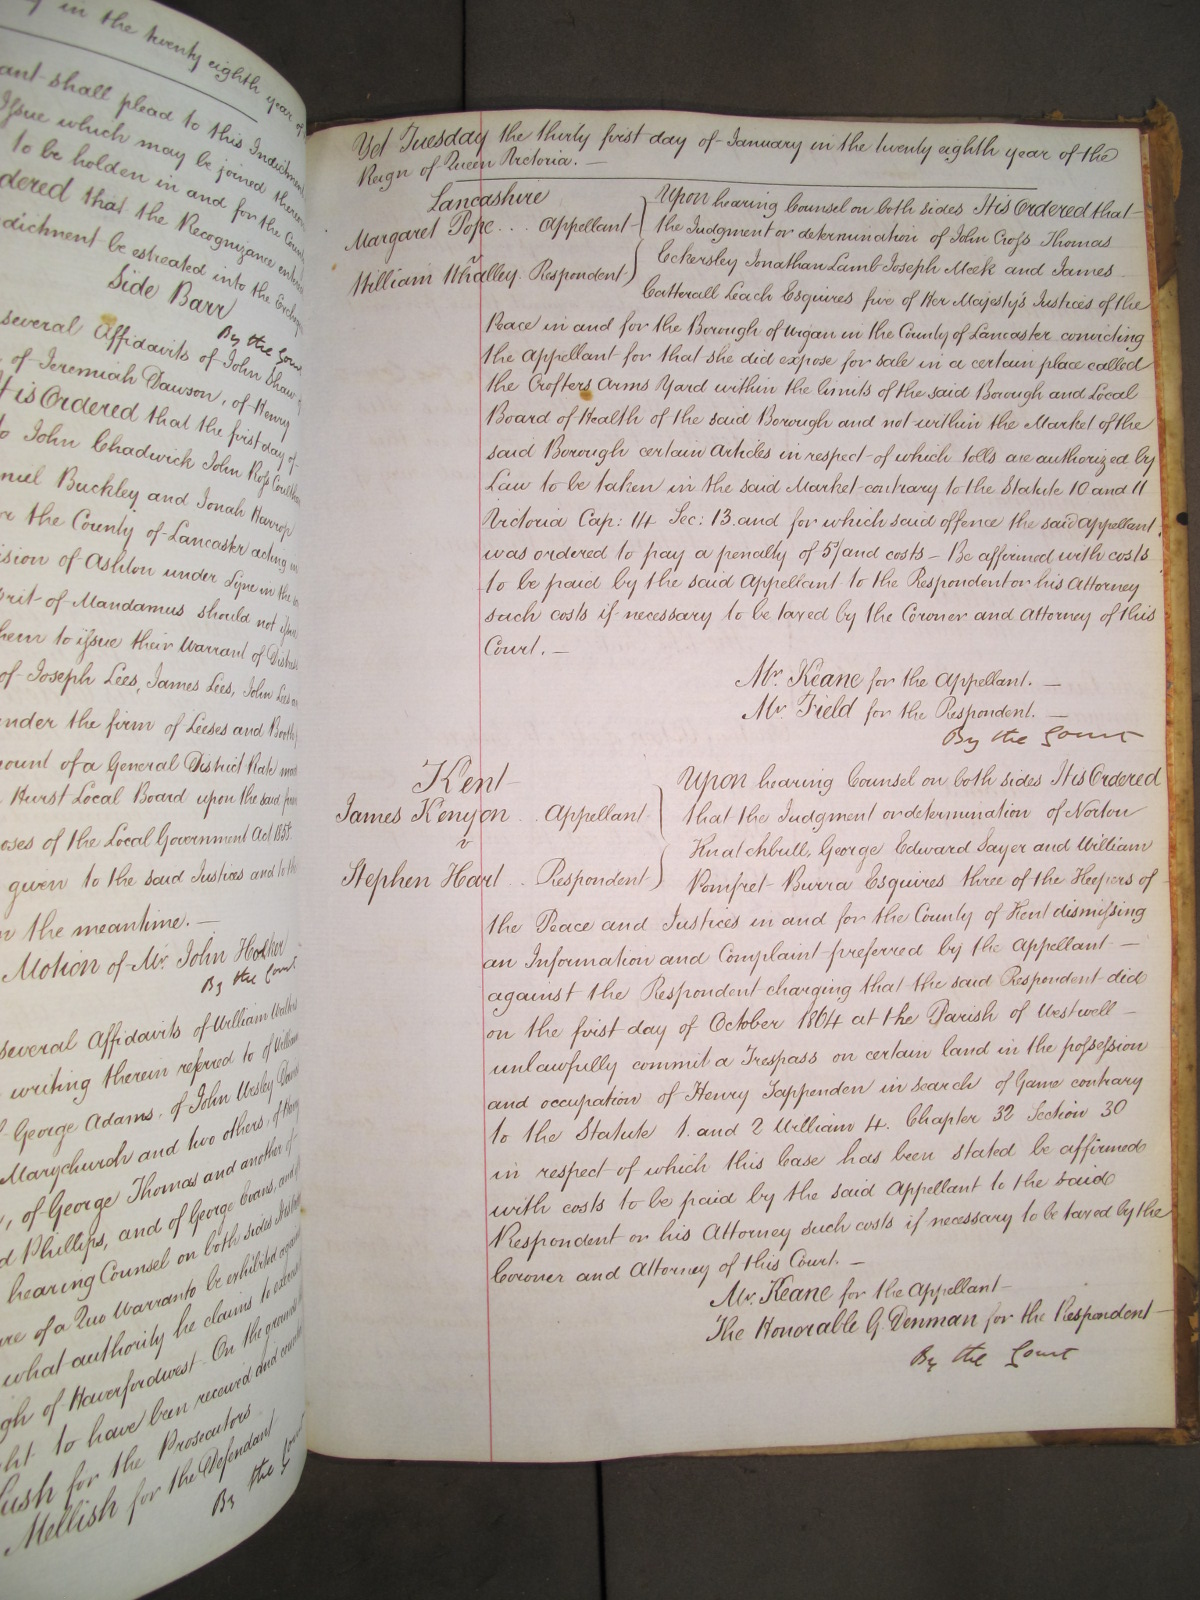 in the twenty eighth year of
ant shall plead to this Indictment
Issue which may be joined thereon
to be holden in and for the County
dered that the Recognizance
dictment be estreated into the
Side Barr
By the Court
several Affidavits of John Shaw
of Jeremiah Dawson, of Henry
It is Ordered that the first day of
to John Chadwick John Ross
muel Buckley and Jonah Harrop
the County of Lancaster acting in
ision of Ashton under Lyne in the
rit of Mandamus should not issue
them to issue their Warrant of Distress
of Joseph Lees, James Lees, John Lees
under the firm of Leeses and Booth
mount of a General District Rate made
Hurst Local Board upon the said
oses of the Local Government Act 1858
given to the said Justices and to the
in the meantime. —
Motion of Mr. John Hosker
By the Court
several Affidavits of William Walters
writing therein referred to of William
George Adams, of John
Marychurch and two others, of
, of George Thomas and another of
d Phillips, and of George Evans, and of
hearing Counsel on both sides It is
ure of a Quo Warranto be exhibited against
what authority he claims to
gh of Haverfordwest On the grounds
ht to have been received and
Lush for the Prosecutors
Mellish for the Defendant
By the Court
Yet Tuesday the thirty first day of January in the twenty eighth year of the
Reign of Queen Victoria. —
Lancashire
Margaret Pope . . . Appellant
v
William Whalley . Respondent
Upon hearing Counsel on both sides It is Ordered that
the Judgment or determination of John Cross Thomas
Eckersley Jonathan Lamb Joseph Meek and James
Catterall Leach Esquires five of Her Majesty's Justices of the
Peace in and for the Borough of Wigan in the County of Lancaster convicting
the Appellant for that she did expose for sale in a certain place called
the Crofters Arms Yard within the limits of the said Borough and Local
Board of Health of the said Borough and not within the Market of the
said Borough certain Articles in respect of which tolls are authorized by
Law to be taken in the said Market contrary to the Statute 10 and 11
Victoria Cap: 14 Sec: 13. and for which said offence the said Appellant
was ordered to pay a penalty of 5/ and costs — Be affirmed with costs
to be paid by the said Appellant to the Respondent or his Attorney
such costs if necessary to be taxed by the Coroner and Attorney of this
Court. —
Mr. Keane for the Appellant. —
Mr. Field for the Respondent. —
By the Court
Kent
James Kenyon . . Appellant
v
Stephen Hart . . Respondent
Upon hearing Counsel on both sides It is Ordered
that the Judgment or determination of Norton
Knatchbull, George Edward Sayer and William
Pomfret Burra Esquires three of the Keepers of
the Peace and Justices in and for the County of Kent dismissing
an Information and Complaint preferred by the Appellant —
against the Respondent charging that the said Respondent did
on the first day of October 1864 at the Parish of Westwell —
unlawfully commit a Trespass on certain land in the possession
and occupation of Henry Tappenden in search of Game contrary
to the Statute 1. and 2 William 4. Chapter 32 Section 30
in respect of which this Case has been stated be affirmed
with costs to be paid by the said Appellant to the said
Respondent or his Attorney such costs if necessary to be taxed by the
Coroner and Attorney of this Court. —
Mr. Keane for the Appellant —
The Honorable G. Denman for the Respondent —
By the Court